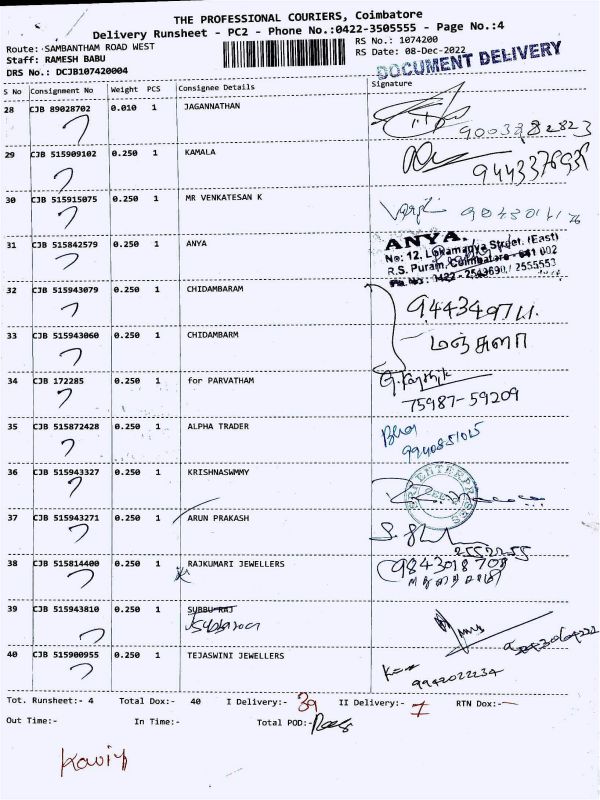 THE PROFESSIONAL COURIERS, Coimbatore
Delivery Runsheet - PC2 - Phone No.:0422-3505555 - Page No.:4
Route: SAMBANTHAM ROAD WEST RS No.: 1074200
Staff: RAMESH BABU RS Date: 08-Dec-2022
DRS No.: DCJB107420004 DOCUMENT DELIVERY
S No Consignment No Weight PCS Consignee Details Signature
28 CJB 89028702 0.010 1 JAGANNATHAN
29 CJB 515909102 0.250 1 KAMALA
30 CJB 515915075 0.250 1 MR VENKATESAN K
31 CJB 515842579 0.250 1 ANYA
ANYA.
No: 12, Lokamanya Street, (East)
R.S. Puram, Coimbatore - 641 002
32 CJB 515943079 0.250 1 CHIDAMBARAM
33 CJB 515943060 0.250 1 CHIDAMBARM
மஞ்சுளா
34 CJB 172285 0.250 1 for PARVATHAM G. Karthik
75987-59209
35 CJB 515872428 0.250 1 ALPHA TRADER
9940851015
36 CJB 515943327 0.250 1 KRISHNASWMMY
37 CJB 515943271 0.250 1 ARUN PRAKASH
2552255
38 CJB 515814400 0.250 1 RAJKUMARI JEWELLERS 9843018708
39 CJB 515943810 0.250 1 SUBBU RAJ
40 CJB 515900955 0.250 1 TEJASWINI JEWELLERS
9942022234
Tot. Runsheet:- 4 Total Dox:- 40 I Delivery:- 39 II Delivery:- 1 RTN Dox:-
Out Time:- In Time:- Total POD:-